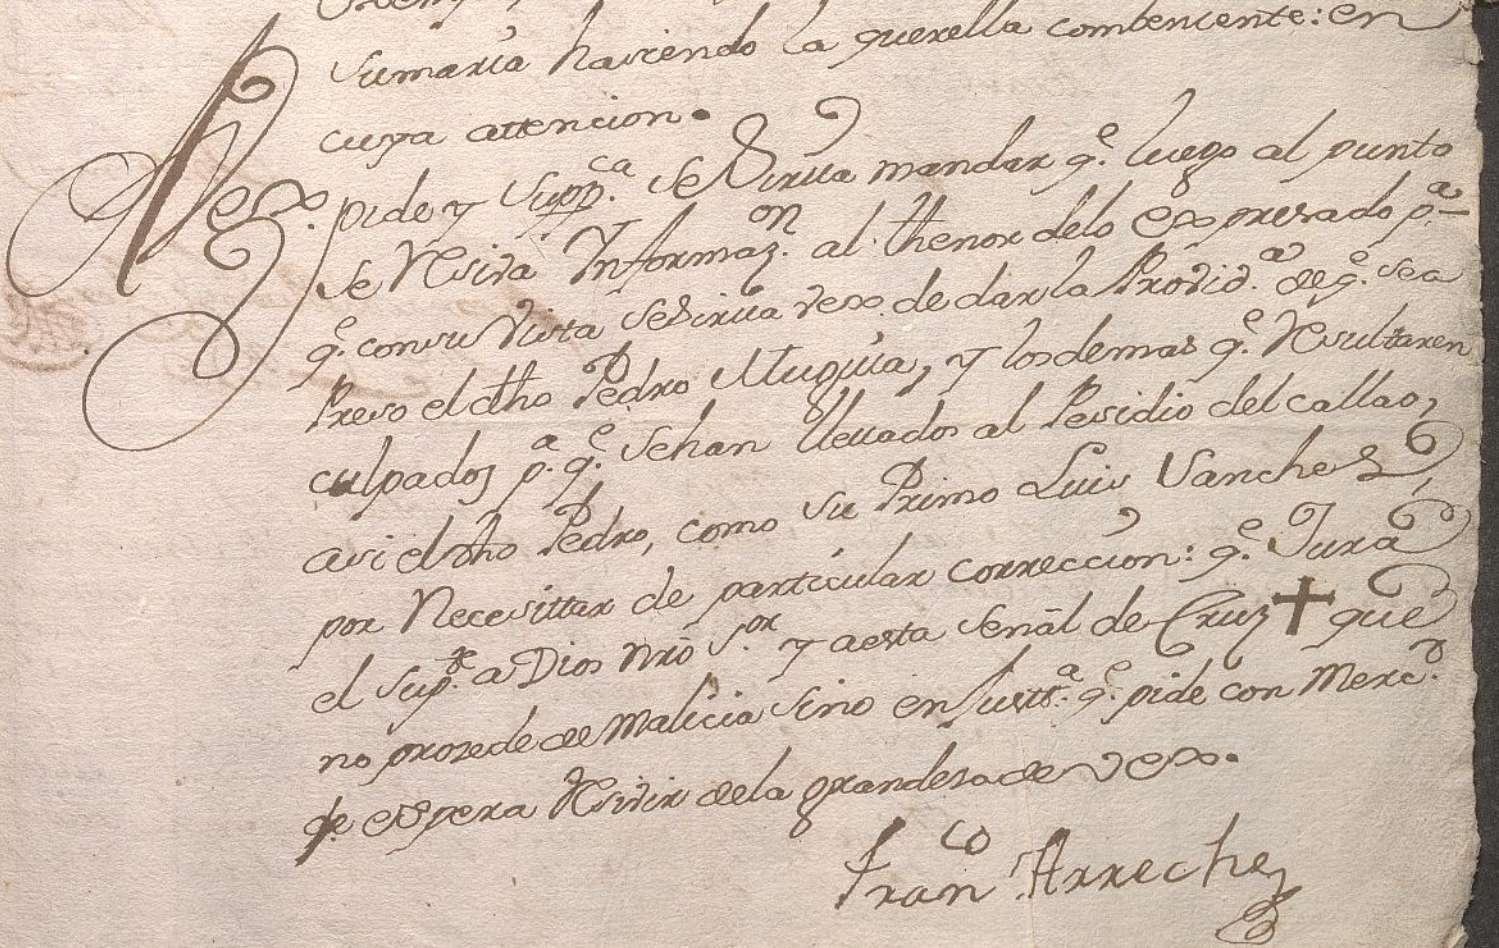 sumaria hasiendo la querella combeniente: en
cuya attencion.
A Vex.ª pide y Supp.ca se Sirva mandar q.e luego al punto
se Resiva Ynformaz.on al thenor delo Expresado p.a
q.e consu Vista seSirva Vex.a de dar la Provid.a de q.e sea
Preso el dho Pedro Mugia, y los demas q.e Resultaren
culpados p.a q.e sehan llevados al Pesidio del callao,
asi el dho Pedro, como su Primo Luis Sanches,
por Necesittar de particular correccion: q.e Jura
el Sup.te a Dios nrō S.or y a esta señal de Cruz + que
no prosede de malicia sino en Justt.a q.e pide con Merc.d
q.e espera Resivir dela grandesa de Vex.a
Fran.co Arreche